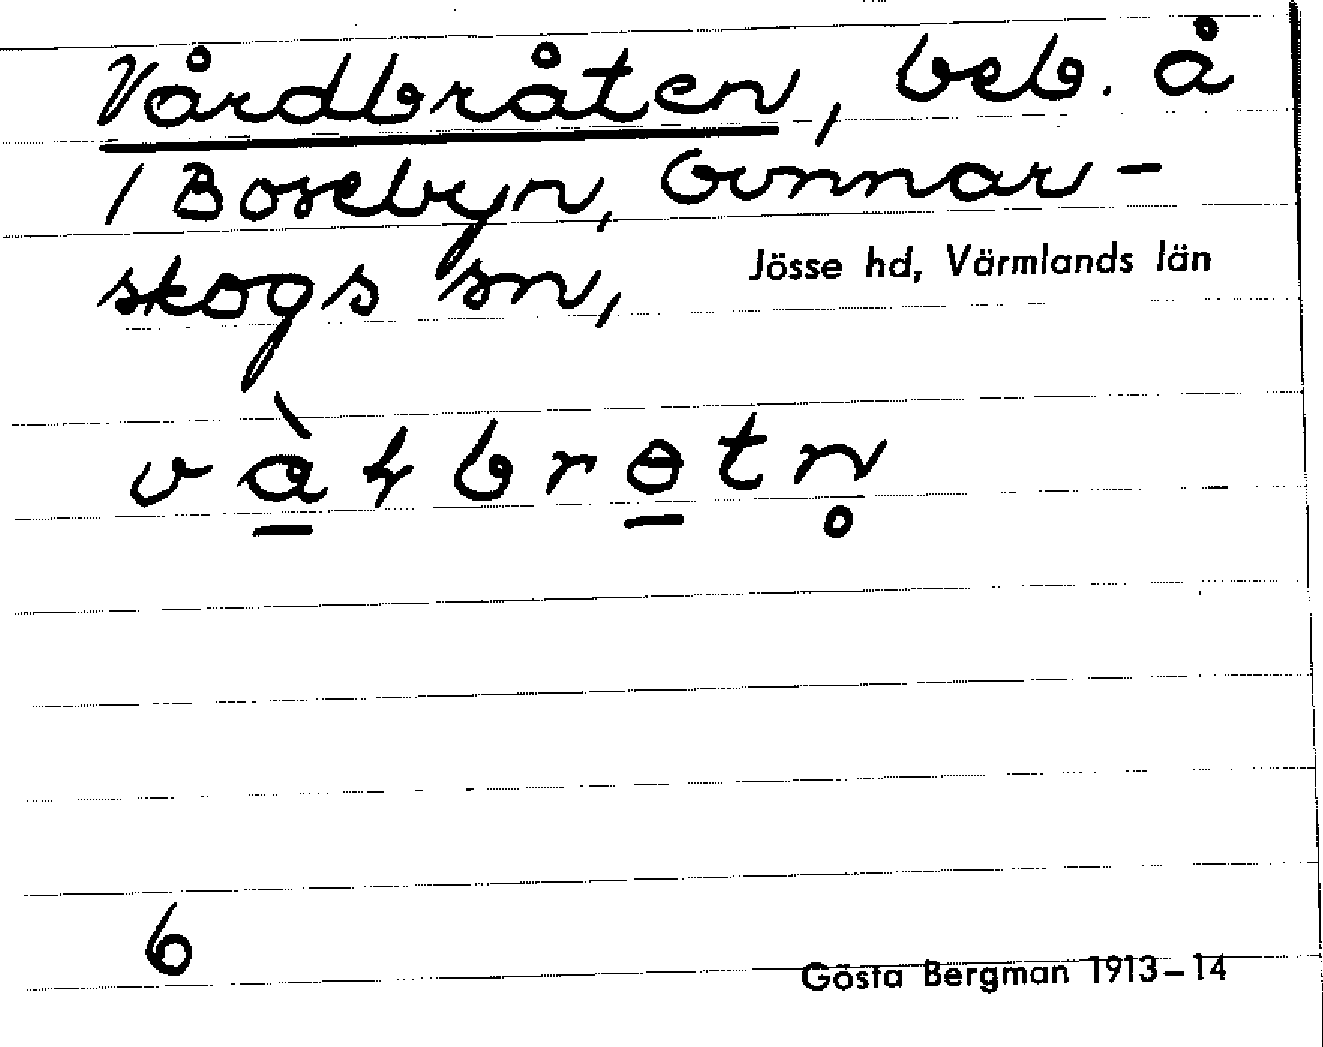 Vårdbråten, beb. å
1 Bosebyn, Gunnar-
skogs sn, Jösse hd, Värmlands län
6
Gösta Bergman 1913-14